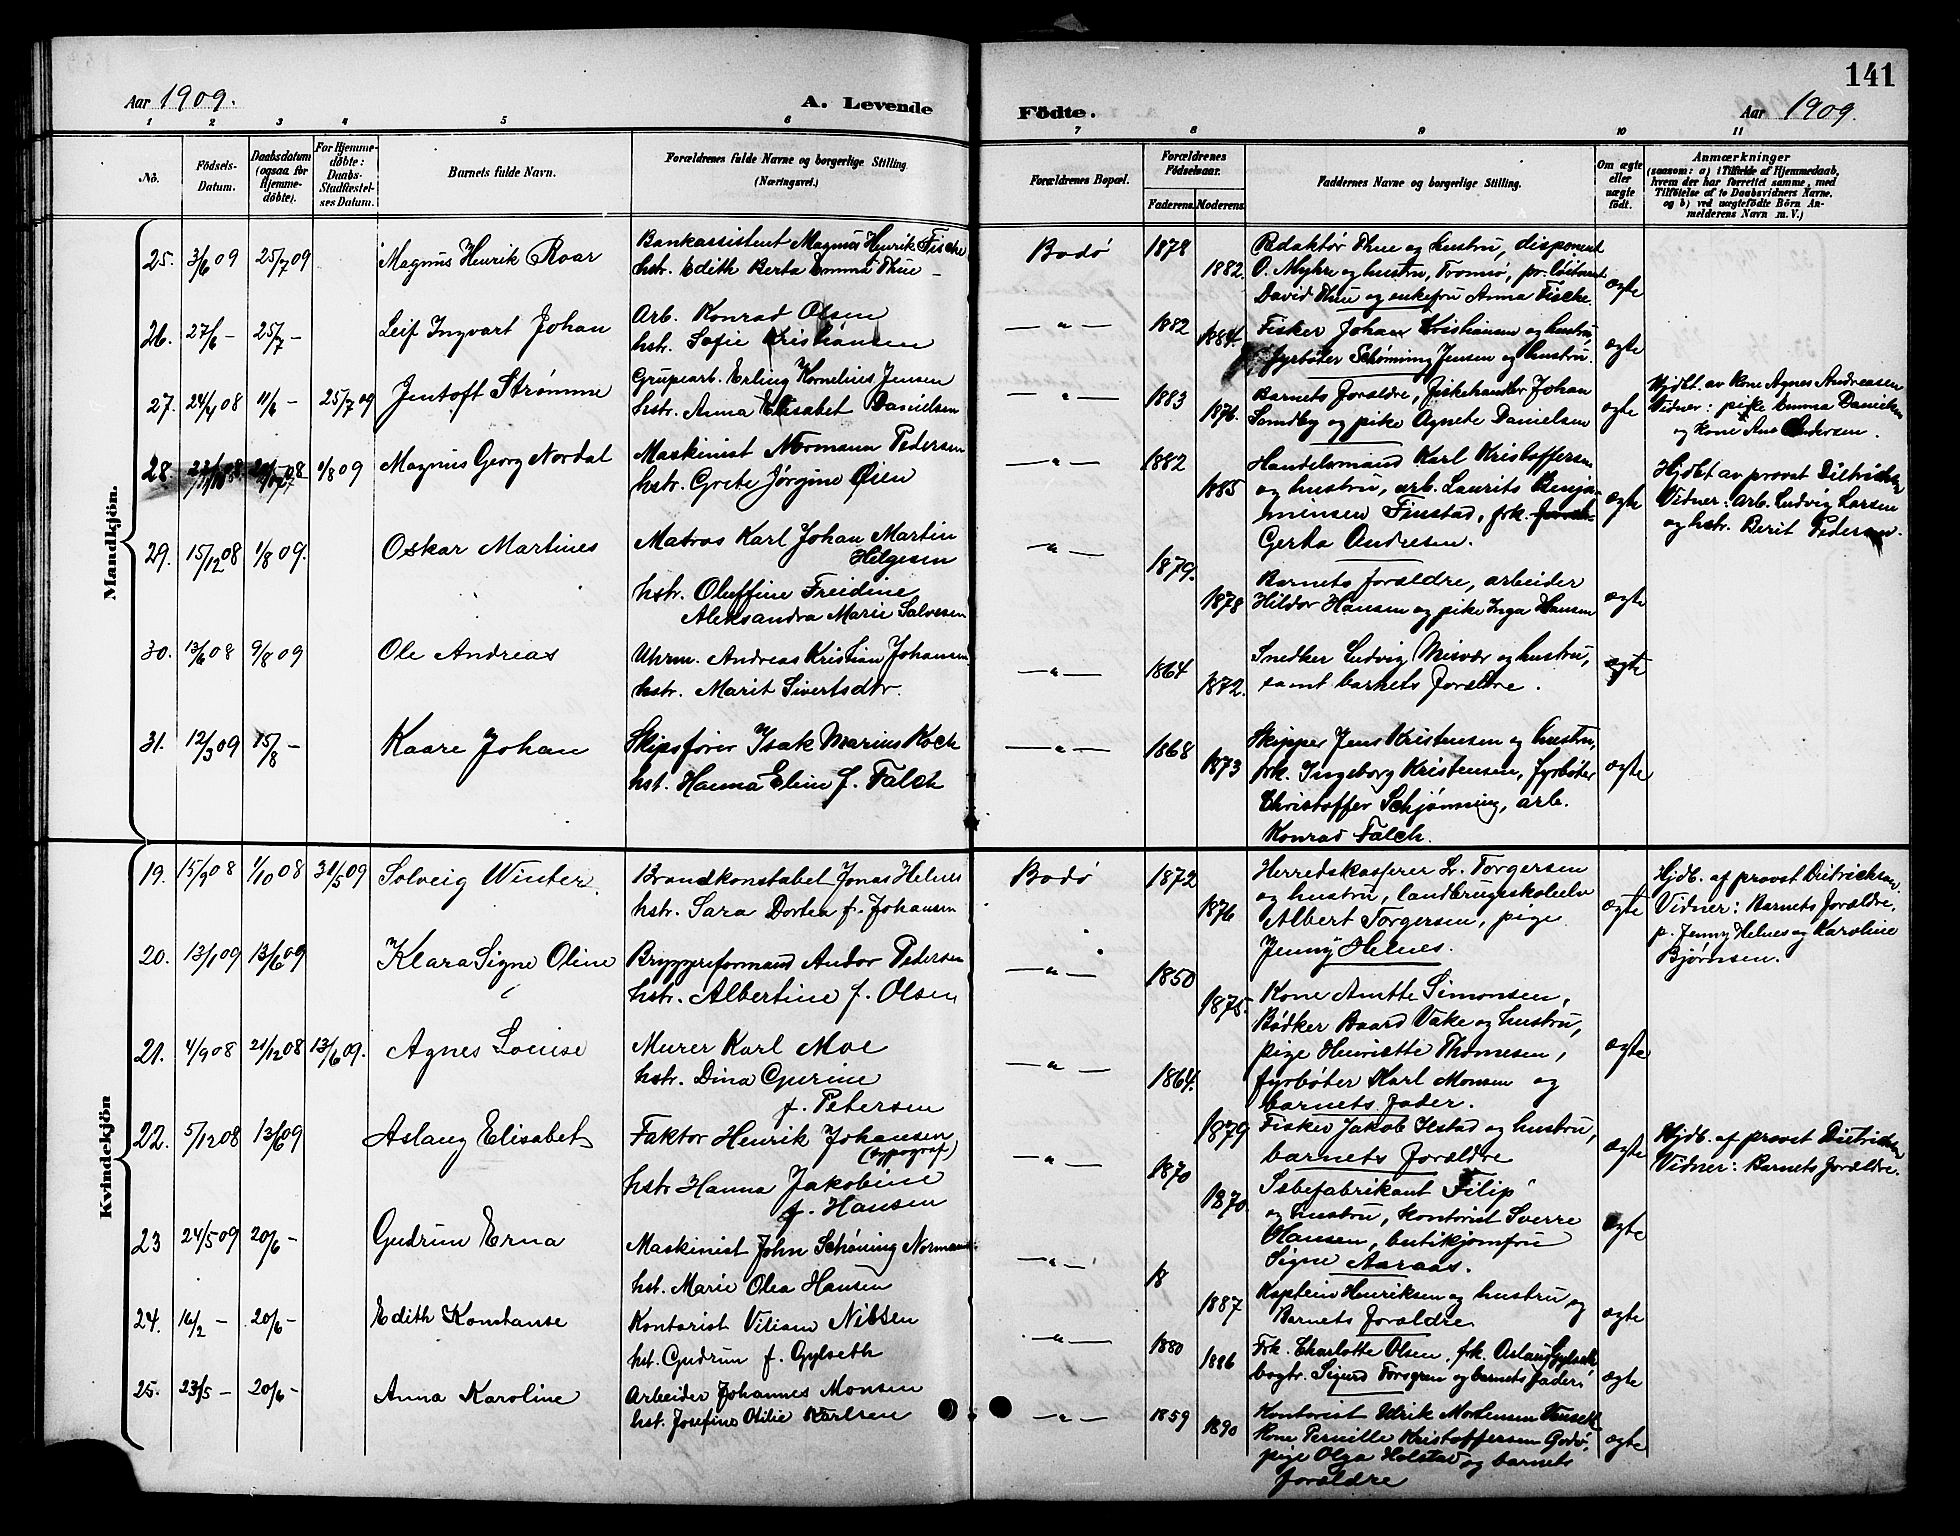 141
Aar 1909.
A. Levende
Födte.
Aar 1909.
1 2 3 4 5 6 7 8 9 10 11
No.
Födsels-
Datum.
Daabsdatum
(ogsaa for
Hjemme-
døbte).
For Hjemme-
døbte:
Daabs-
Stadfæstel-
ses Datum.
Barnets fulde Navn.
Forældrenes fulde Navne og borgerlige Stilling
(Næringsvei.)
Forældrenes Bopæl.
Forældrenes
Födselsaar.
Faderens.
Moderens.
Faddernes Navne og borgerlige Stilling.
Om ægte
eller
uægte
födt.
Anmærkninger
(saasom: a) i Tilfælde af Hjemmedaab,
hvem der har forrettet samme, med
Tilföielse af to Daabsvidners Navne.
og b) ved uægtefödte Börn An-
melderens Navn m. V.)
Mandkjön.
25. 3/6 09 25/7 09 Magnus Henrik Roar
Bankassistent Magnus Henrik Fische
hstr. Edith Berta Emma Thue –
Bodø 1878 1882.
Redaktør Thue og hustru, disponent
O. Myhre og hustru, Tromsø, pr. löitnant
David Thue og enkefru Anna Fische.
ægte
26. 27/6 – 25/7 – Leif Ingvart Johan
Arb. Konrad Olsen
hstr. Sofie Kristiansen
— " — 1882 1884.
Fisker Johan Kristiansen og hustru,
fyrbøter Schønning Jensen og hustru.
ægte
27. 24/4 08 11/6 – 25/7 09 Jentoft Strømme
Grupearb. Erling Kornelius Jensen
hstr. Anna Elisabet Danielsen
— " — 1883 1876.
Barnets forældre, fiskehandler Johan
Sandby og pike Agnete Danielsen
ægte
Hjdbt. av kone Agnes Andreasen
Vidner: pike Emma Danielsen
og kone Ane Andersen.
28. 1/8 09 Magnus Georg Nordal
Maskinist Normann Pedersen
hstr. Grete Jørgine Olsen
— " — 1882 1885
Handelsmand Karl Kristoffersen
og hustru, arb. Laurits Benja-
mensen Finstad, frk.
Gerda Andresen.
ægte
Hjdbt av provst Dietrichsen
Vidner: Arb. Ludvig Larsen
og hstr. Berit Pedersen.
29. 15/12 08 1/8 09. Oskar Martines
Matros Karl Johan Martin
Helgesen
hstr. Oluffine Freidine
Aleksandra Marie Salvesen
— " — 1879. 1878
Barnets forældre, arbeider
Hildor Hansen og pike Inga Hansen
ægte
30. 13/6 08 9/8 09 Ole Andreas
Uhrm. Andreas Kristian Johansen
hstr. Marit Sivertsdtr.
— " — 1864 1872.
Snedker Ludvig Misvær og hustru,
samt barnets forældre.
ægte
31. 12/3 09 15/8 – Kaare Johan
Skipsfører Isak Marius Koch
hst. Hanna Eline f. Falch
— " — 1868 1873
Skipper Jens Kristensen og hustru,
frk. Ingeborg Kristensen, fyrbøter
Christoffer Schjønning, arb.
Konrad Falch.
ægte
Kvindekjön
19. 15/9 08 1/10 08 31/5 09 Solveig Winter.
Brandkonstabel Jonas Helnes
hstr. Sara Dortea f. Johansen
Bodø 1872 1876
Herredskasserer L. Torgersen
og hustru, landbrugsskoleelv
Albert Torgersen, pige
Jenny Helnes.
ægte
Hjdb. af provst Dietrichsen.
Vidner: Barnets forældre,
p. Jenny Helnes og Karoline
Bjørnsen.
20. 13/1 09 13/6 09 Klara Signe Oline
Bryggeformand Andor Pedersen
hstr. Albertine f. Olsen
— " — 1850 1875.
Kone Anette Simonsen,
Bødker Baard Vake og hustru,
pige Henriette Thomesen,
fyrbøter Karl Monsen og
barnets fader.
ægte
21. 4/9 08 21/12 08 13/6 09. Agnes Louise
Murer Karl Moe
hstr. Dina Gurine
f. Petersen
— " — 1864. 1879
Fisker Jakob Ilstad og hustru,
barnets forældre
ægte
22. 5/12 08 13/6 09 Aslaug Elisabet
Faktor Henrik Johansen
(typograf)
hstr Hanna Jakobine
f. Hansen
— " — 1870 1870.
Sæbefabrikant Filip
og hustru, kontorist Sverre
Hansen, butikjomfru
Signe Aaraas.
ægte
Hjdb. af provst Dietrichsen
Vidner: Barnets forældre.
23 24/5 09 20/6 – Gudrun Erna
Maskinist John Schøning Normann
hst. Marie Olea Hansen
— " — 18 1887
Kaptein Henriksen og hustru, og
Barnets forældre
ægte
24. 16/2 – 20/6 – Edith Konstanse
Kontorist Viliam Nilsen
hst. Gudrun f. Gylseth
— " — 1880 1886
Frk. Charlotte Olsen, frk. Aslaug Gylseth
bogtr. Sigurd Forsgren og barnets fader
ægte
25. 23/5 – 20/6 – Anna Karoline
Arbeider Johannes Monsen
hst. Josefine Otilie Karlsen
— " — 1859 1890
Kontorist Ulrik Mortensen
Kone Pernille Kristoffersen Godø,
pige Olga Holstad og barnets
forældre
ægte